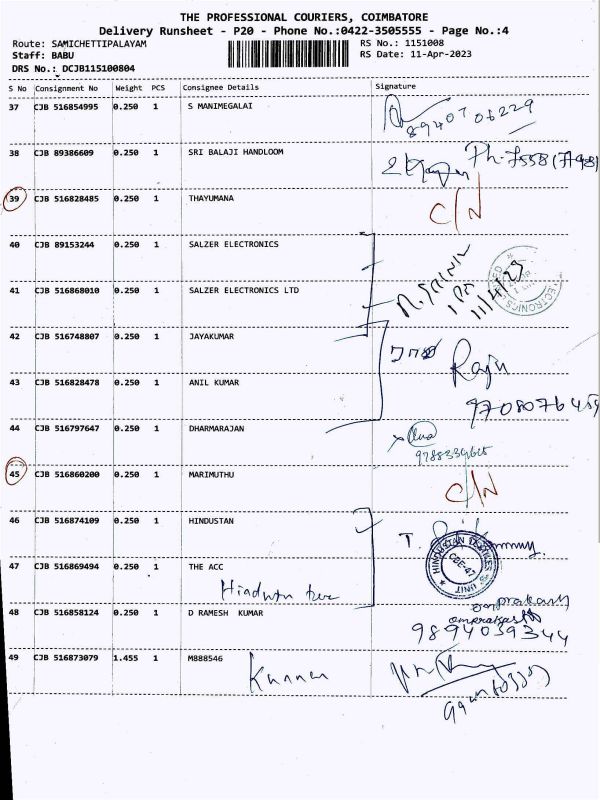 THE PROFESSIONAL COURIERS, COIMBATORE
Delivery Runsheet - P20 - Phone No.:0422-3505555 - Page No.:4
Route: SAMICHETTIPALAYAM
Staff: BABU
DRS No.: DCJB115100804
RS No.: 1151008
RS Date: 11-Apr-2023
S No Consignment No Weight PCS Consignee Details Signature
37 CJB 516854995 0.250 1 S MANIMEGALAI
8940706229
38 CJB 89386609 0.250 1 SRI BALAJI HANDLOOM
39 CJB 516828485 0.250 1 THAYUMANA C/N
40 CJB 89153244 0.250 1 SALZER ELECTRONICS
41 CJB 516868010 0.250 1 SALZER ELECTRONICS LTD
11/4/23
42 CJB 516748807 0.250 1 JAYAKUMAR
Raju
43 CJB 516828478 0.250 1 ANIL KUMAR
44 CJB 516797647 0.250 1 DHARMARAJAN
45 CJB 516860200 0.250 1 MARIMUTHU C/N
46 CJB 516874109 0.250 1 HINDUSTAN
HINDUSTAN TEXTILES UNIT
CBE-47
47 CJB 516869494 0.250 1 THE ACC
omprakash
48 CJB 516858124 0.250 1 D RAMESH KUMAR
omprakash
9894039344
49 CJB 516873079 1.455 1 M888546
Kannan